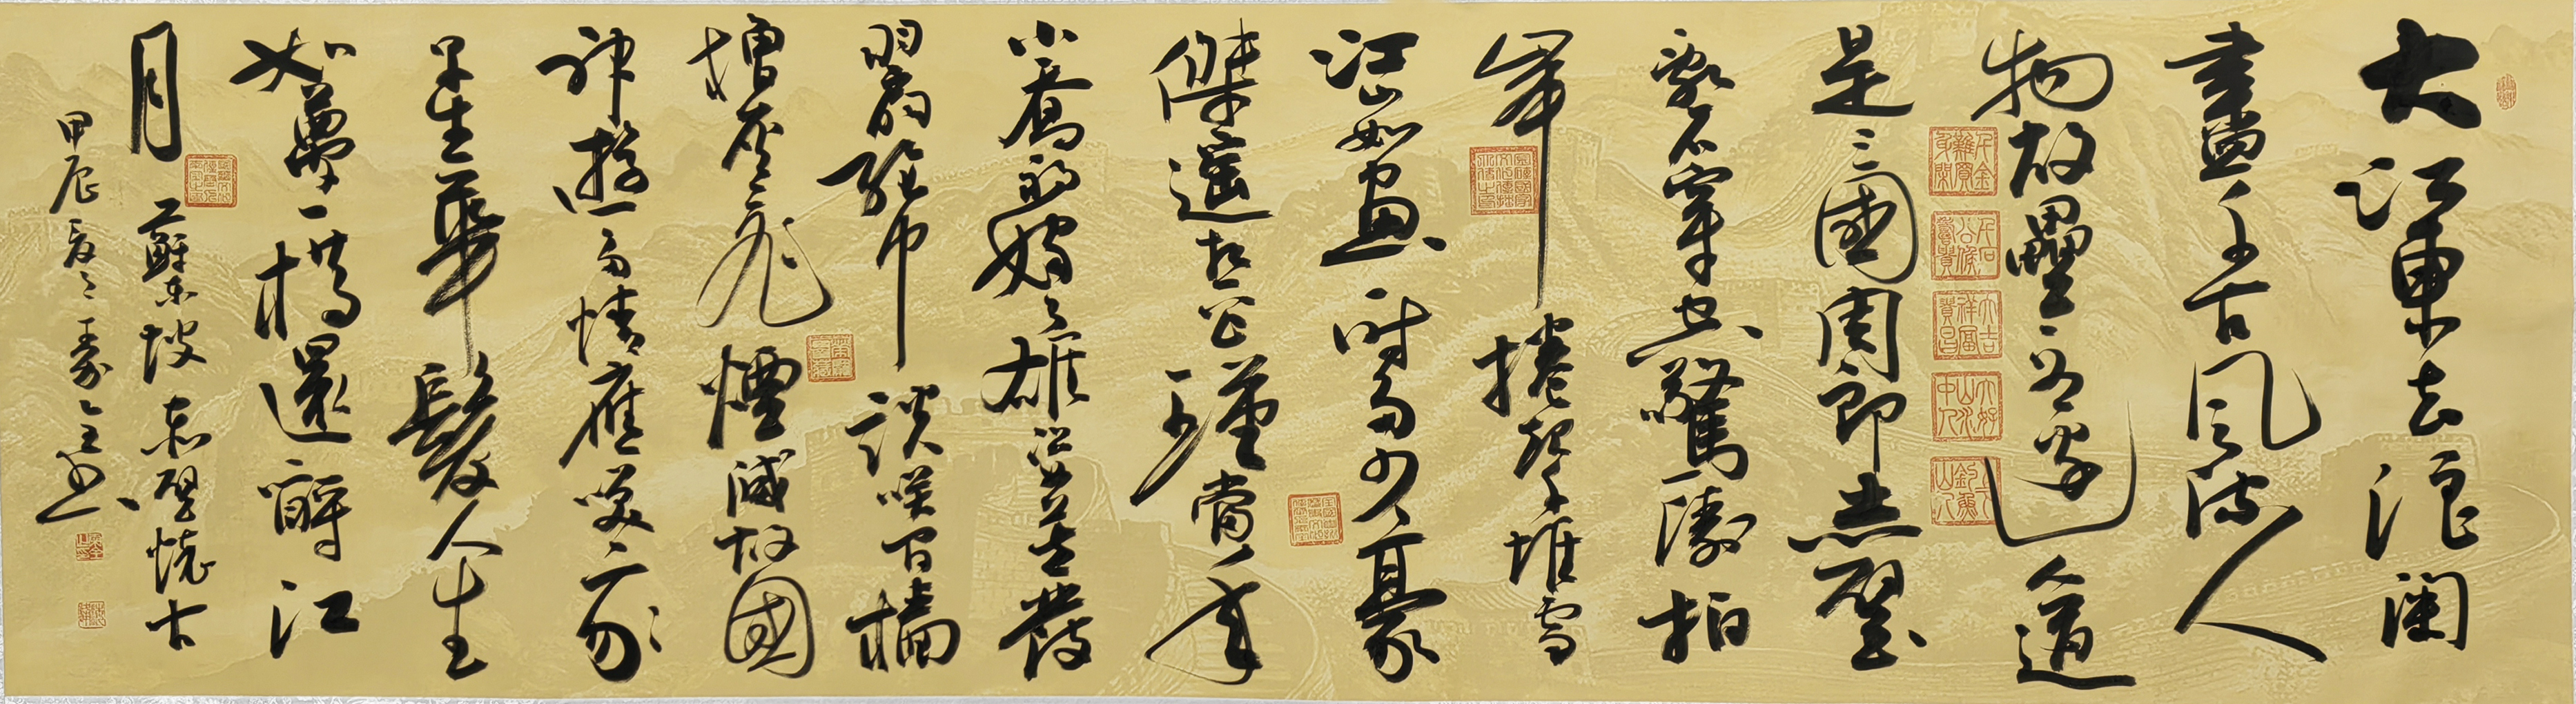 大江東去浪淘
盡千古風流人
物故壘西邊人道
是三國周郎赤壁
亂石穿空驚濤拍
岸捲起千堆雪
江山如畫一時多少豪
傑遙想公瑾當年
小喬初嫁了雄姿英發
羽扇綸巾談笑間檣
櫓灰飛煙滅故國
神遊多情應笑我
早生華髮人生
如夢一樽還酹江
月
蘇東坡赤壁懷古
甲辰夏之